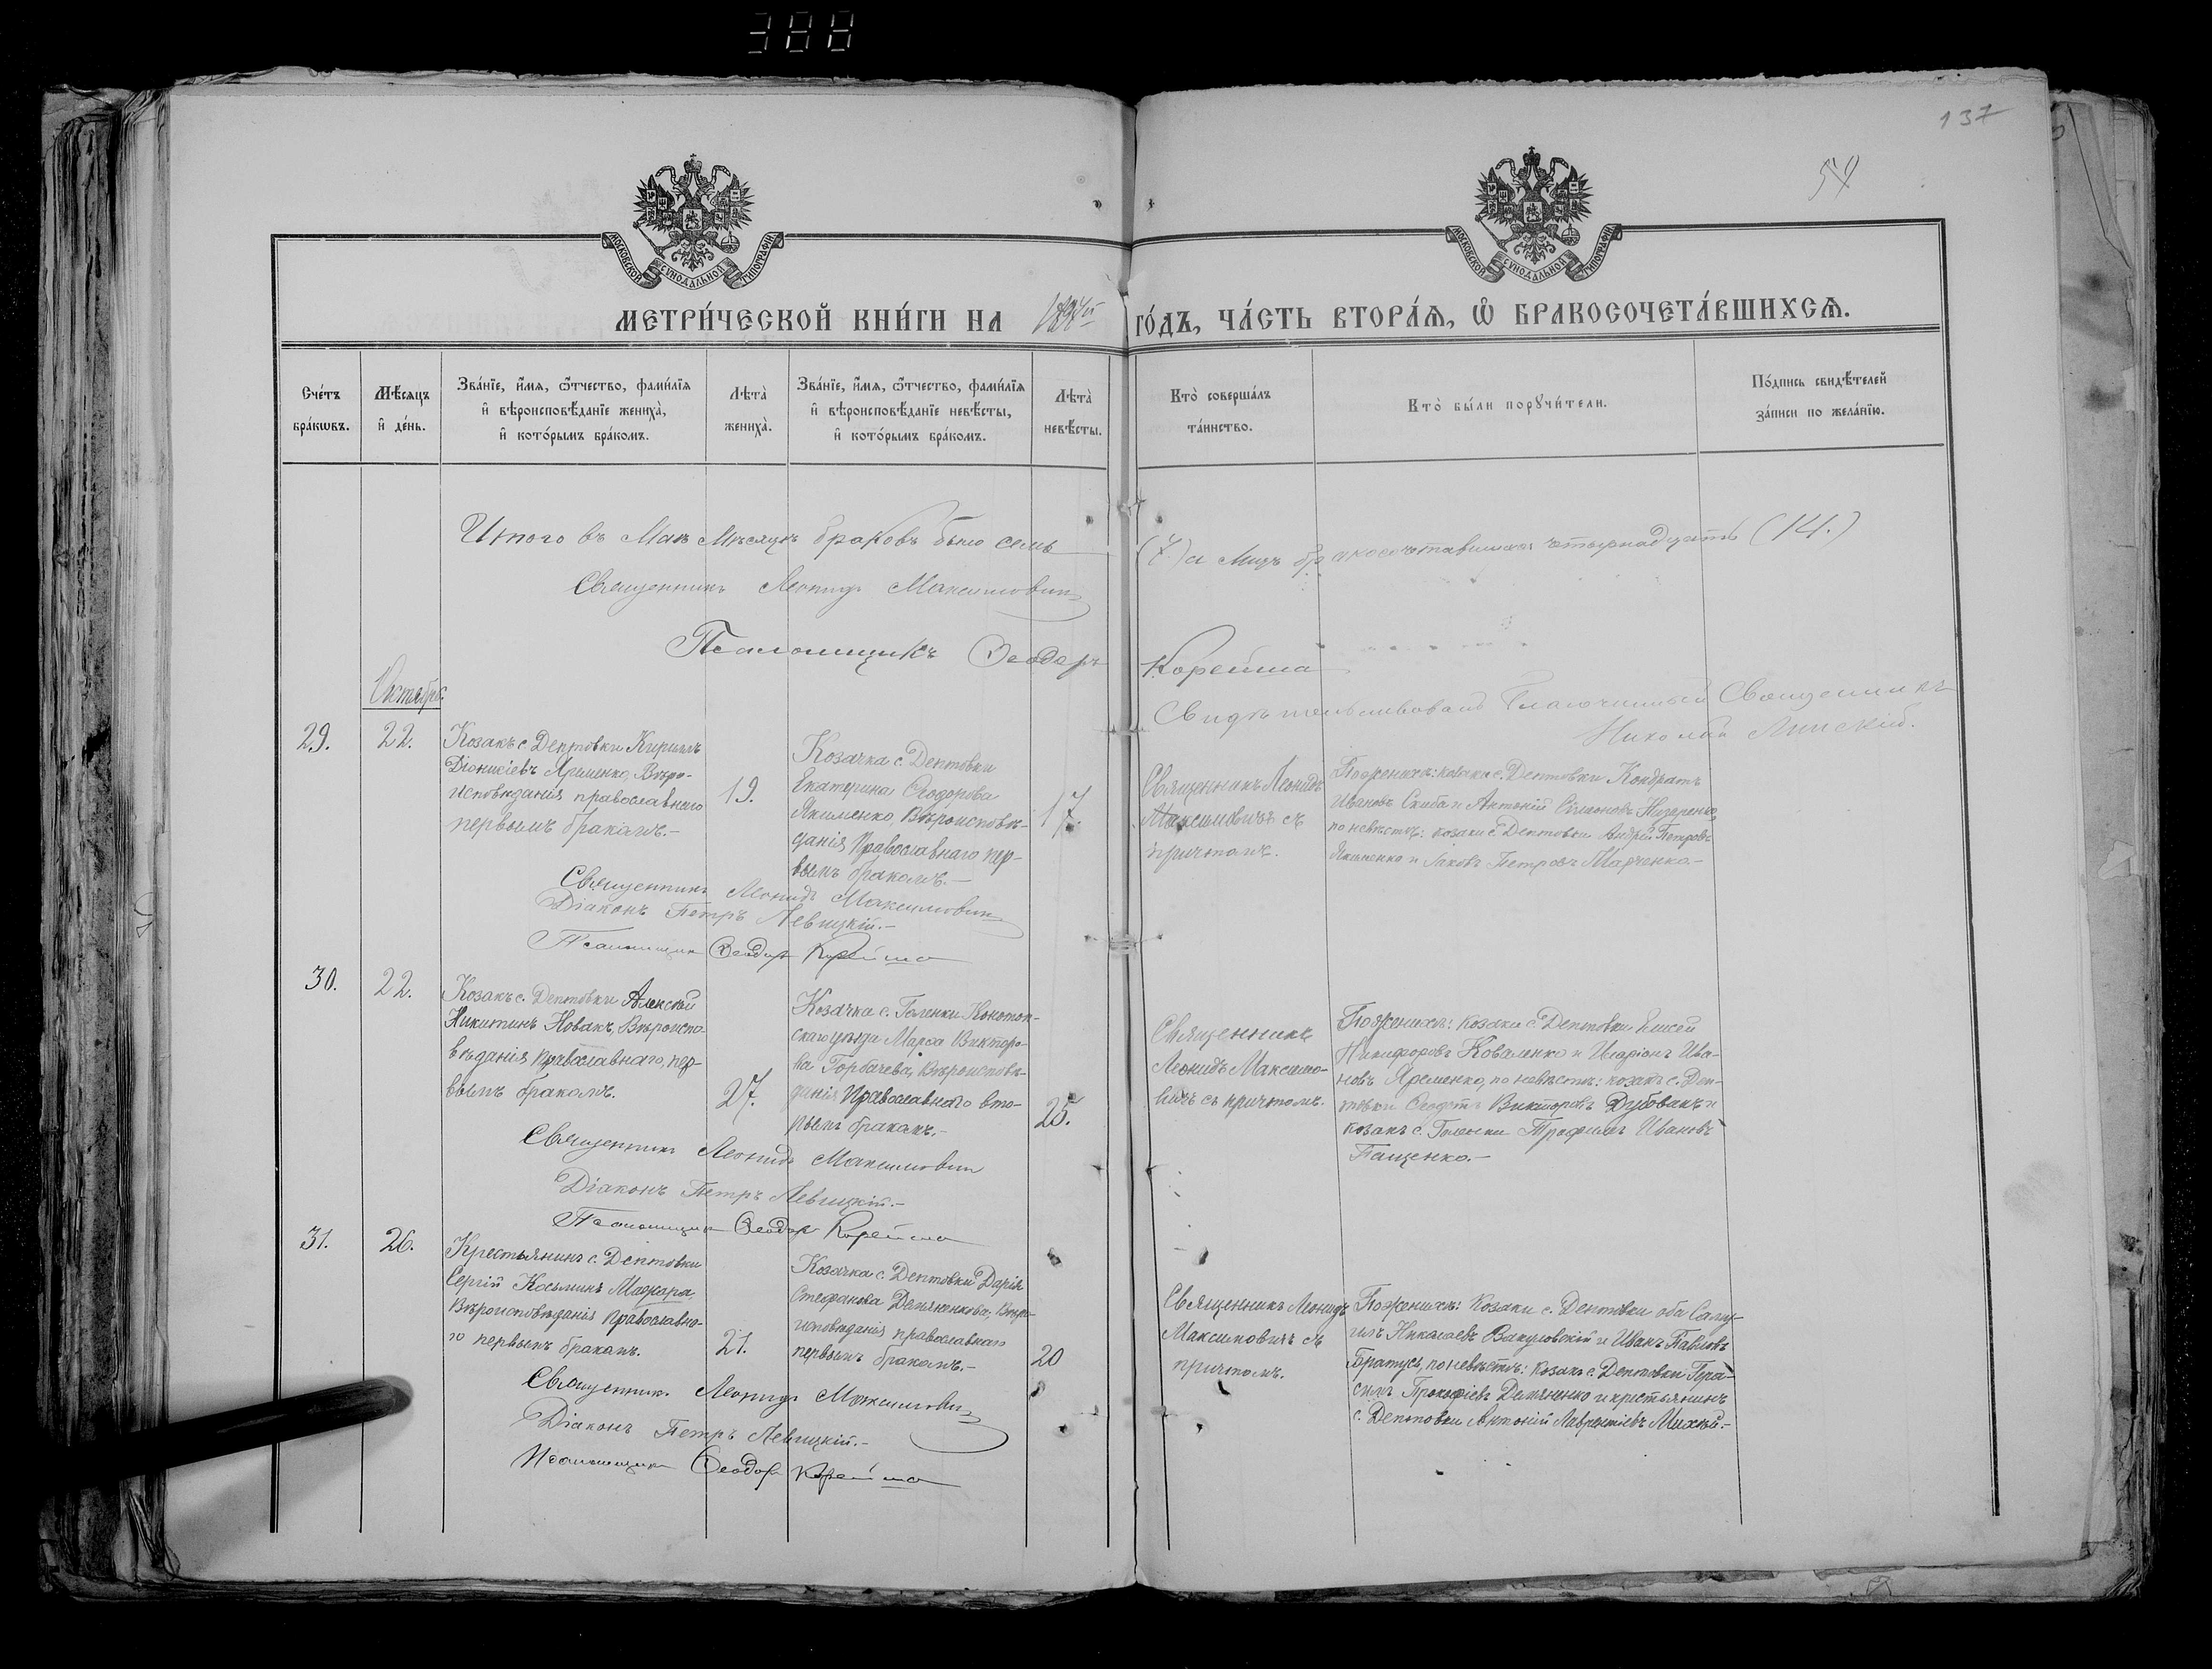 388
137
МОСКОВСКОЙ СѴНОДАЛЬНОЙ ТИПОГРАФІИ
МОСКОВСКОЙ СѴНОДАЛЬНОЙ ТИПОГРАФІИ
МЕТРИ́ЧЕСКОЙ КНИ́ГИ НА
ГО́ДЪ, ЧА́СТЬ ВТОРА́Я, Ѽ БРАКОСОЧЕТА́ВШИХСЯ.
Сче́тъ бра́кѡвъ.
Мѣ́сяцъ и҆ де́нь.
Зва́нїе, и҆́мя, ѻ҆́тчество, фами́лїя
и҆ вѣроисповѣ́данїе жениха̀,
и҆ кото́рымъ бра́комъ.
Лѣта̀ жениха̀.
Зва́нїе, и҆́мя, ѻ҆́тчество, фами́лїя
и҆ вѣроисповѣ́данїе невѣ́сты,
и҆ кото́рымъ бра́комъ.
Лѣта̀ невѣ́сты.
Кто̀ соверша́лъ та́инство.
Кто̀ бы́ли порꙋчи́тели.
По́дпись свидѣ́телей за́писи по жела́нїю.
Итого въ Маѣ Мѣсяцѣ браковъ было семь (7.) а лицъ бракосочетавшихся четырнадцать (14.)
Священникъ Леонидъ Максимовичъ
Псаломщикъ Ѳеодоръ Корейша
Свидѣтельствовалъ Благочинный Священникъ
Николай
Октябрь
29.
22.
Козакъ с. Дептовки Кириллъ
Діонисіевъ Яременко, Вѣро-
исповѣданія православнаго
первымъ бракомъ.-
19.
Козачка с. Дептовки
Екатерина Ѳеодорова
Якименко, Вѣроисповѣ-
данія Православнаго пер-
вымъ бракомъ.-
17.
Священникъ Леонидъ
Максимовичъ съ
причтомъ.
По женихѣ: козаки с. Дептовки Кондратъ
Ивановъ Скиба и Антоній Симоновъ Назаренко,
по невѣстѣ: козаки с. Дептовки Андрей Петровъ
Якименко и Яковъ Петровъ Марченко.-
Священникъ Леонидъ Максимовичъ
Діаконъ Петръ Левицкій.-
Псаломщикъ Ѳеодоръ Корейша
30.
22.
Козакъ с. Дептовки Алексѣй
Никитинъ Новакъ, Вѣроиспо-
вѣданія православнаго, пер-
вымъ бракомъ.
27.
Козачка с. Голенки Конотоп-
скаго уѣзда Марѳа Викторо-
ва Горбачева, Вѣроисповѣ-
данія Православнаго вто-
рымъ бракомъ.-
25.
Священникъ
Леонидъ Максимо-
вичъ съ причтомъ.
По женихѣ: козаки с. Дептовки Елисей
Никифоровъ Коваленко и Иларіонъ Ива-
новъ Яременко, по невѣстѣ: козакъ с. Деп-
товки Ѳеодотъ Викторовъ Дубовикъ и
козакъ с. Голенки Трофимъ Ивановъ
Пащенко.-
Священникъ Леонидъ Максимовичъ
Діаконъ Петръ Левицкій.-
Псаломщикъ Ѳеодоръ Корейша
31.
26.
Крестьянинъ с. Дептовки
Сергій Косьминъ Мажара,
Вѣроисповѣданія Православна-
го первымъ бракомъ.
21.
Козачка с. Дептовки Дарія
Стефанова Демяненкова, Вѣро-
исповѣданія православнаго
первымъ бракомъ.-
20
Священникъ Леонидъ
Максимовичъ съ
причтомъ.
По женихѣ: Козаки с. Дептовки оба Саму-
илъ Николаевъ Вакуловскій и Иванъ Павловъ
Братусь, по невѣстѣ: Козакъ с. Дептовки Гера-
симъ Прокофіевъ Демяненко и крестьянинъ
с. Дептовки Антоній Лаврентіевъ Михѣй.-
Священникъ Леонидъ Максимовичъ
Діаконъ Петръ Левицкій.-
Псаломщикъ Ѳеодоръ Корейша